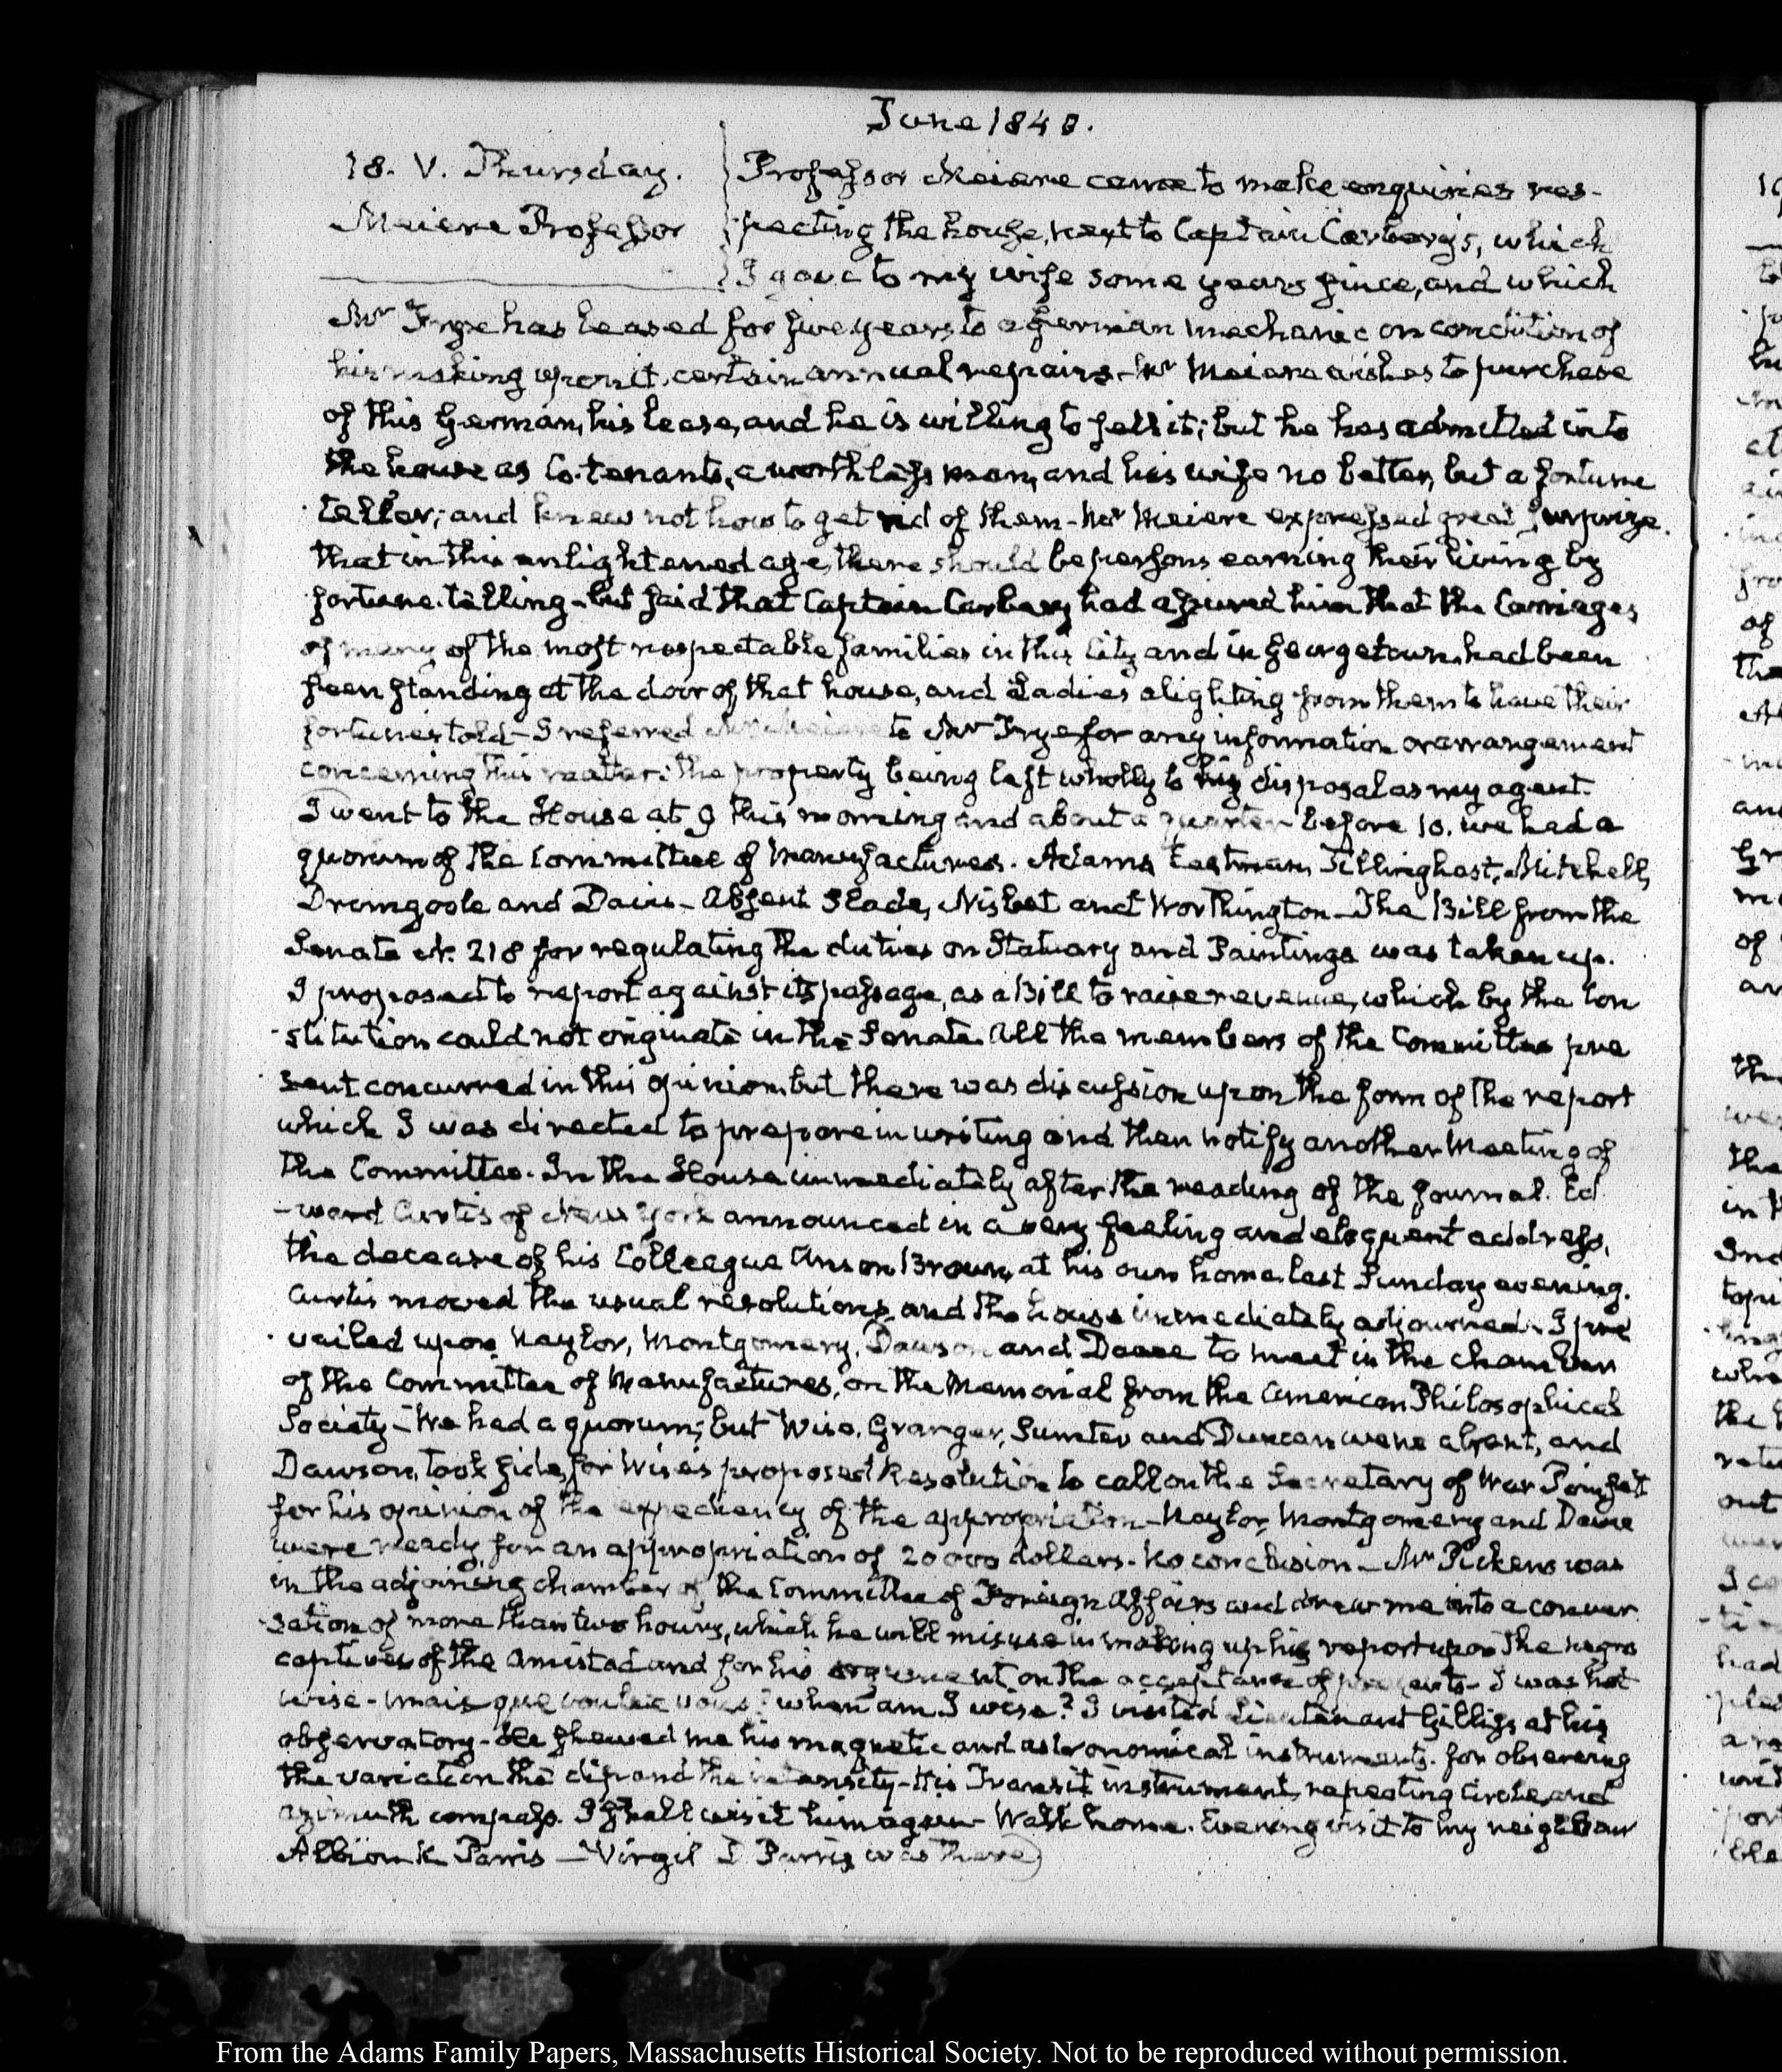 June 1840.
18. V. Thursday.
Meiere Professor
Professor Meiere came to make enquiries res-
pecting the house, next to Captain Carbery's, which
I gave to my wife some years since, and which
Mr Frye has leased for five years, to a German mechanic on condition of
his making upon it, certain annual repairs. Mr Meiere wishes to purchase
of this German, his lease, and he is willing to sell it; but he has admitted into
the house as Co-tenants, a worthless man, and his wife no better, but a fortune
teller; and knew not how to get rid of them - Mr Meiere expressed great surprize
that in this enlightened age, there should be persons earning their living by
fortune-telling - but said that Captain Carbery had assured him that the Carriages
of many of the most respectable families in this City and in Georgetown had been
seen standing at the door of that house, and Ladies alighting from them to have their
fortunes told - I referred Mr Meiere to Mr Frye for any information or arrangement
concerning this matter: the property being left wholly to his disposal as my agent.
I went to the House at 9 this morning and about a quarter before 10. we had a
quorum of the Committee of Manufactures. Adams, Eastman, Tillinghast, Mitchell,
Dromgoole and Davis - Absent Slade, Nisbet and Worthington - The Bill from the
Senate N. 218 for regulating the duties on Statuary and Paintings was taken up.
I proposed to report against its passage, as a Bill to raise revenue, which by the Con
-stitution could not originate in the Senate. All the members of the Committee pre
-sent concurred in this opinion, but there was discussion upon the form of the report
which I was directed to prepare in writing and then notify another Meeting of
the Committee. In the House immediately after the reading of the Journal. Ed
-ward Curtis of New York announced in a very feeling and eloquent address,
the decease of his Colleague Anson Brown, at his own home last Sunday evening.
Curtis moved the usual resolutions, and the house immediately adjourned. I pre
-vailed upon Naylor, Montgomery, Dawson and Doane to meet in the chamber
of the Committee of Manufactures, on the Memorial from the American Philosophical
Society - We had a quorum; but Wise, Granger, Sumter and Duncan were absent, and
Dawson, took side, for Wise's proposed Resolution to call on the Secretary of War Poinsett
for his opinion of the expediency of the appropriation - Naylor, Montgomery and Doane
were ready for an appropriation of 20000 dollars. No conclusion - Mr Pickens was
in the adjoining chamber of the Committee of Foreign Affairs and drew me into a conver
-sation of more than two hours, which he will misuse in making up his report upon the negro
captives of the Amistad and for his argument on the acceptance of presents - I was not
wise - mais que voulez vous? when am I wise? I visited Lieutenant Gilliss at his
observatory - He shewed me his magnetic and astronomical instruments. for observing
the variation the dip and the intensity - His Transit instrument, repeating Circle, and
azimuth compass. I shall visit him again - Walk home. Evening visit to my neighbour
Albion K Parris - Virgil D Parris was there
From the Adams Family Papers, Massachusetts Historical Society. Not to be reproduced without permission.